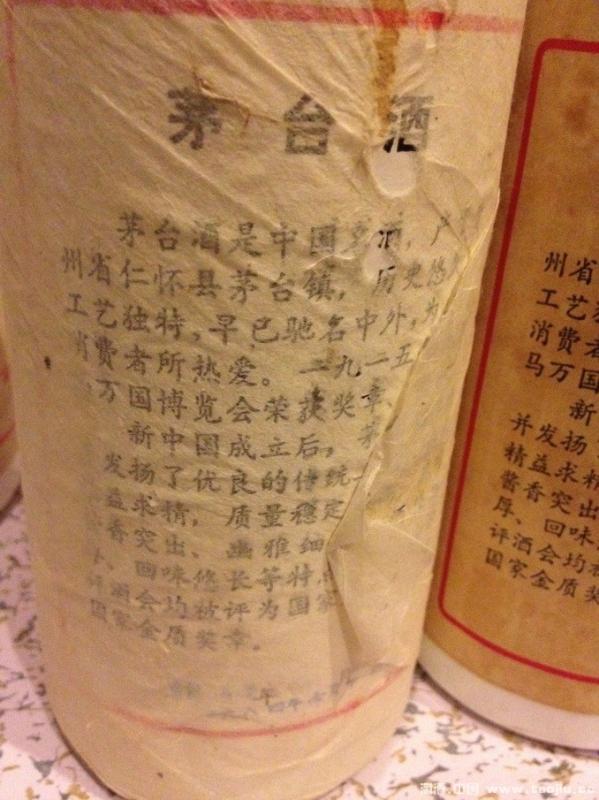 茅台酒
茅台酒是中国 酒，产
州省仁怀县茅台镇，历史悠
工艺独特，早已驰名中外，为
消费者所热爱。一九一五
万国博览会荣获奖章
新中国成立后，茅
发扬了优良的传统
益求精，质量稳定
香突出、幽雅细
、回味悠长等特
评酒会均被评为国家
国家金质奖章。
一九八四年
州省
工艺
消费者
马万国
新
并发扬
精益求精
酱香突出
厚、回味
评酒会均
国家金质奖
www.cnojiu.cc